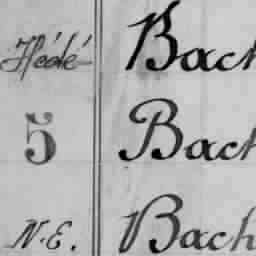 Hédé Bach
5 Bach
N.E. Bach